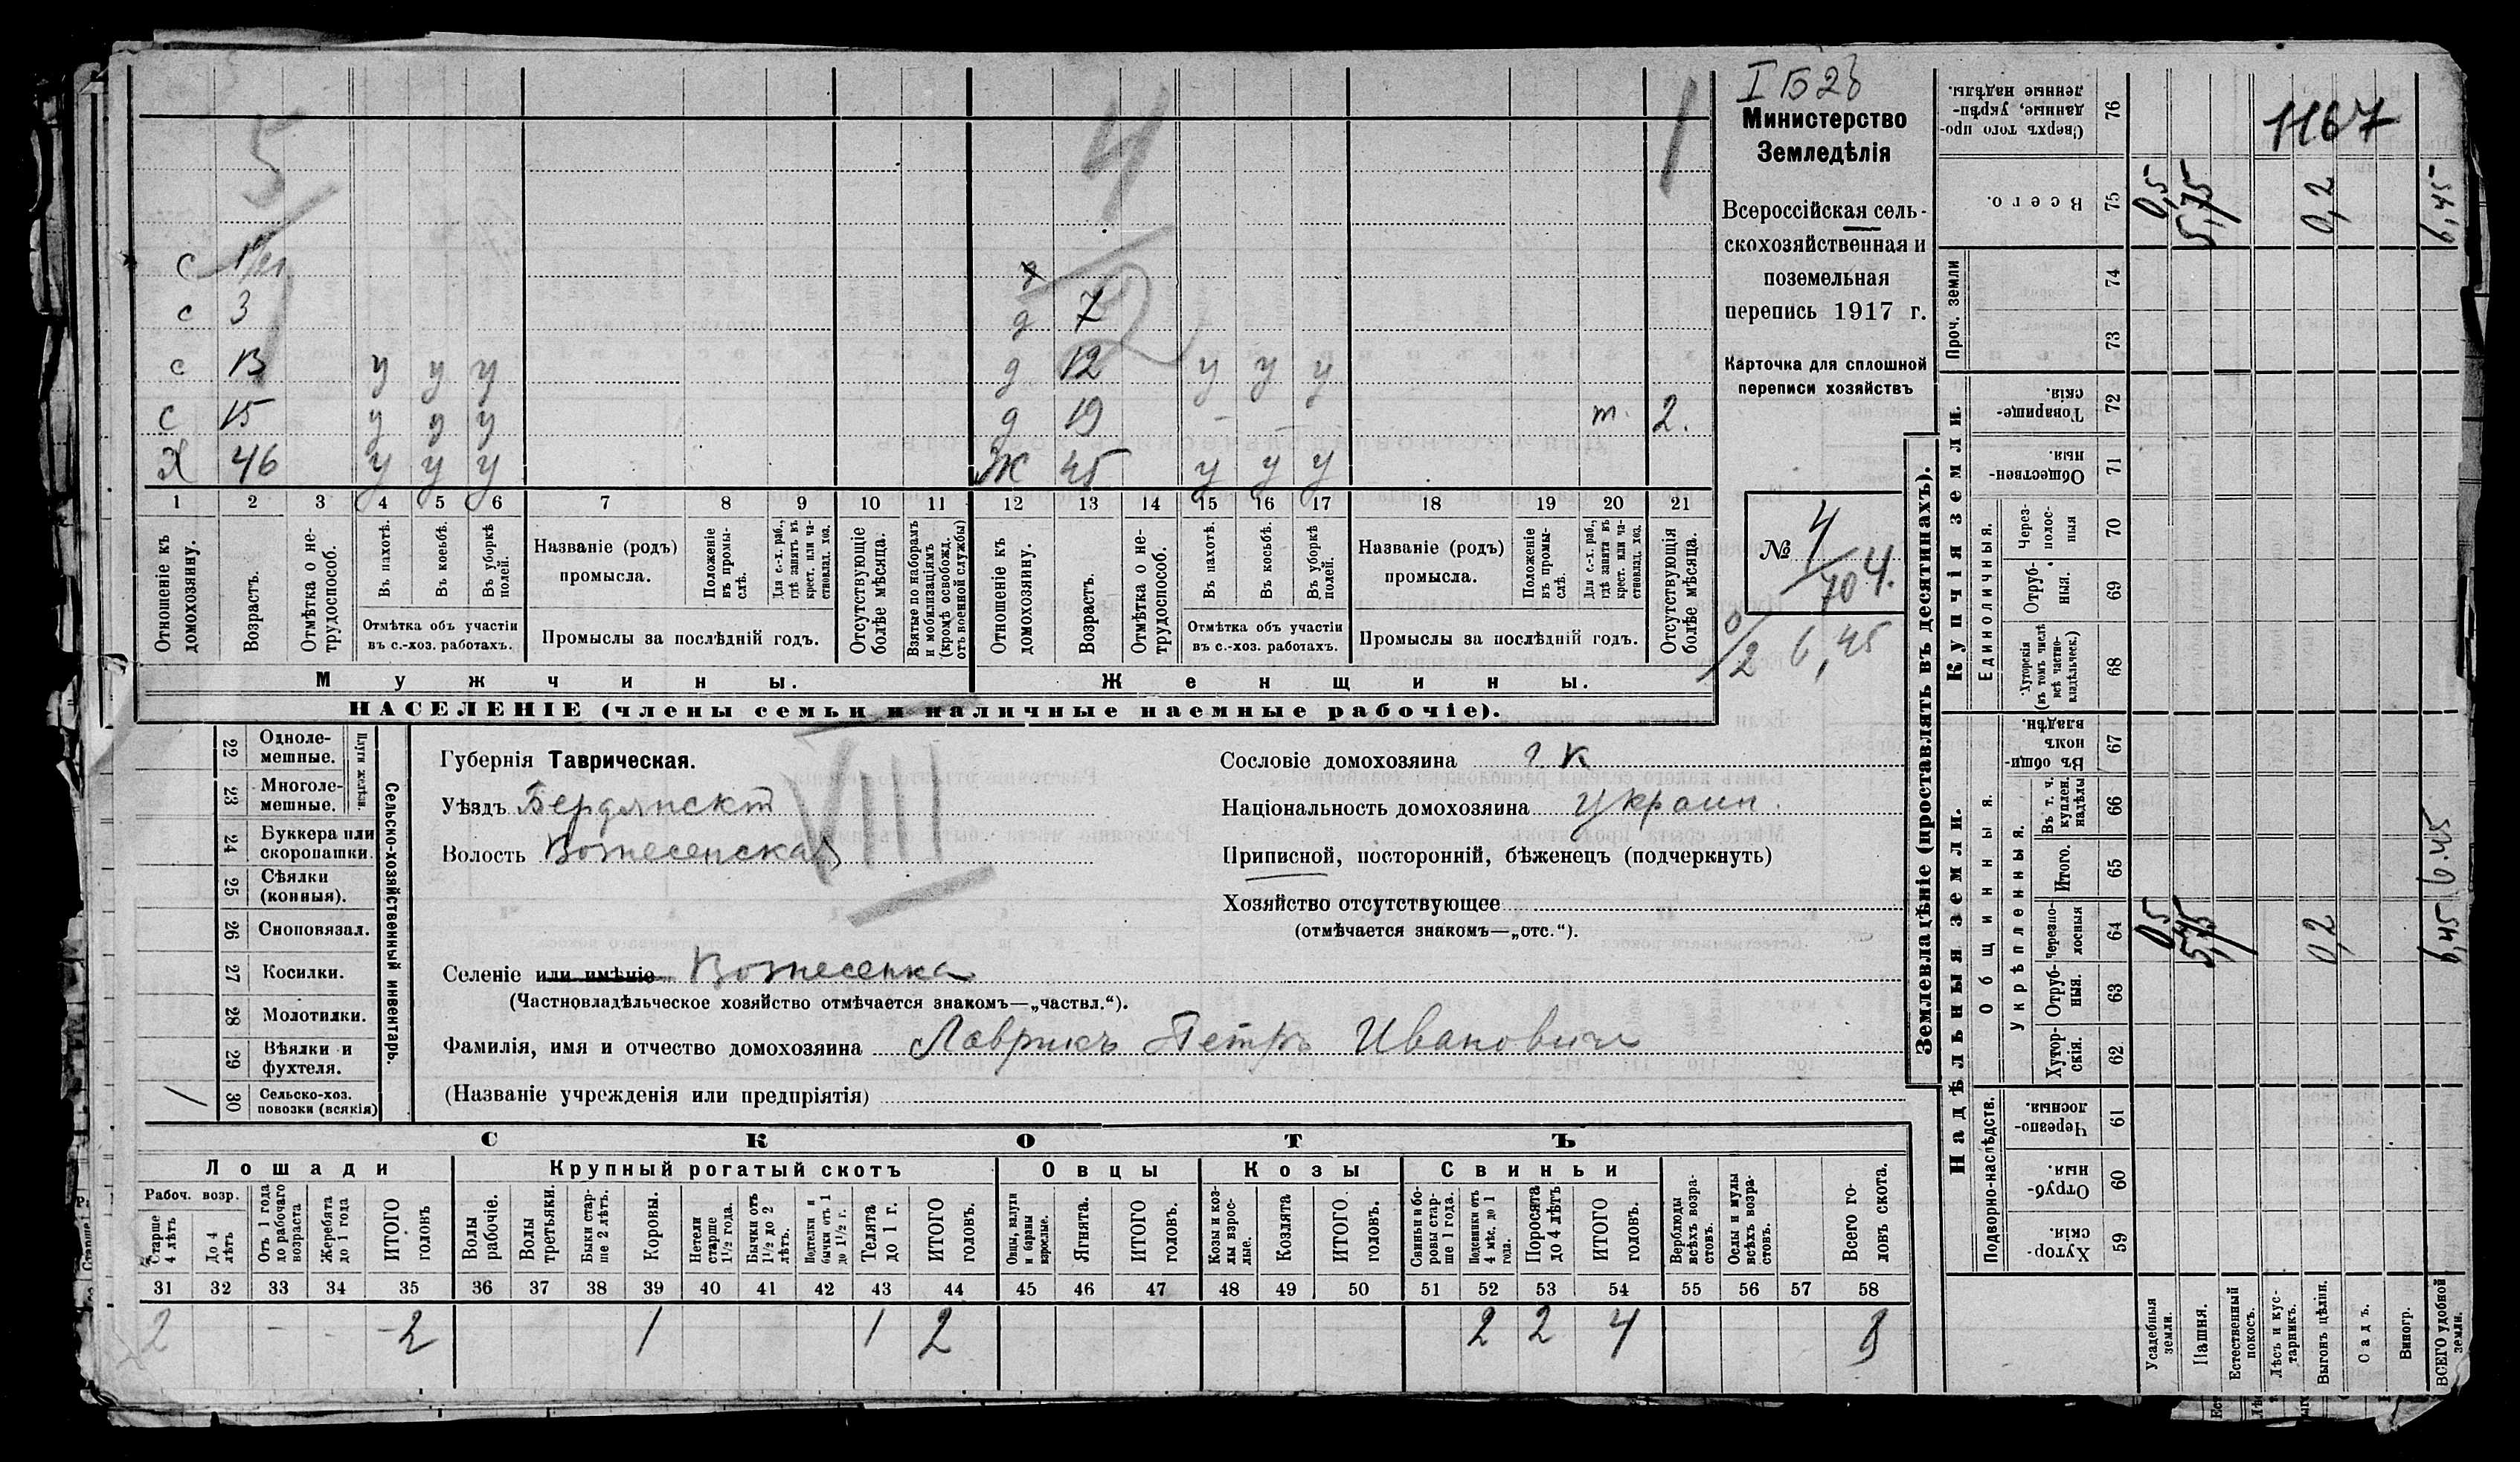 I Б 2
Министерство
Земледѣлія
Всероссійская сель-
скохозяйственная и
поземельная
перепись 1917 г.
Карточка для сплошной
переписи хозяйствъ
№ 4
704.
6,45
5 4 1
с 1/м.
с 3 д 7
с 13 у у у д 12 у у у
с 15 у у у д 19 - т. 2.
Х 46 у у у Ж 45 у у у
1 2 3 4 5 6 7 8 9 10 11 12 13 14 15 16 17 18 19 20 21
Отношеніе къ домохозяину.
Возрастъ.
Отмѣтка о не-трудоспособ.
Въ пахотѣ.
Въ косьбѣ.
Въ уборкѣ полей.
Отмѣтка объ участіи
въ с.-хоз. работахъ.
Названіе (родъ)
промысла.
Положеніе въ промы-слѣ.
Для с.-х. раб., гдѣ занятъ въ крест. или ча-стновлад. хоз.
Промыслы за послѣдній годъ.
Отсутствующіе болѣе мѣсяца.
Взятые по наборамъ и мобилизаціямъ (кромѣ освобожд. отъ военной службы)
Отношеніе къ домохозяину.
Возрастъ.
Отмѣтка о не-трудоспособ.
Въ пахотѣ.
Въ косьбѣ.
Въ уборкѣ полей.
Отмѣтка объ участіи
въ с.-хоз. работахъ.
Названіе (родъ)
промысла.
Положеніе въ промы-слѣ.
Для с.-х. раб., гдѣ занята въ крест. или ча-стновлад. хоз.
Промыслы за послѣдній годъ.
Отсутствующія болѣе мѣсяца.
Мужчины. Женщины.
НАСЕЛЕНІЕ (члены семьи и наличные наемные рабочіе).
Сельско-хозяйственный инвентарь.
Плуги желѣзн.
22 Одноле-мешные.
23 Многоле-мешные.
24 Буккера или скоропашки.
25 Сѣялки (конныя).
26 Сноповязал.
27 Косилки.
28 Молотилки.
29 Вѣялки и фухтеля.
30 Сельско-хоз. повозки (всякія) 1
VIII
Губернія Таврическая.
Уѣздъ Бердянскій
Волость Вознесенская
Селеніе или имѣніе Вознесенка
(Частновладѣльческое хозяйство отмѣчается знакомъ—„частвл.“).
Фамилія, имя и отчество домохозяина Лаврикъ Петръ Ивановичъ
(Названіе учрежденія или предпріятія)
Сословіе домохозяина к
Національность домохозяина украин.
Приписной, посторонній, бѣженецъ (подчеркнуть)
Хозяйство отсутствующее
(отмѣчается знакомъ—„отс.“).
СКОТЪ
Лошади Крупный рогатый скотъ Овцы Козы Свиньи
Рабоч. возр.
Старше 4 лѣтъ
До 4 лѣтъ
Отъ 1 года до рабочаго возраста
Жеребята до 1 года
ИТОГО головъ
Волы рабочіе.
Волы третьяки.
Быки стар-ше 2 лѣтъ.
Коровы.
Нетели старше 1½ года.
Бычки отъ 1½ до 2 лѣтъ.
Подтелки и бычки отъ 1 до 1½ г.
Телята до 1 г.
ИТОГО головъ.
Овцы, валухи и бараны взрослые.
Ягнята.
ИТОГО головъ.
Козы и коз-лы взрос-лые.
Козлята
ИТОГО головъ.
Свиньи и бо-ровы стар-ше 1 года.
Подсвинки отъ 4 мѣс. до 1 года.
Поросята до 4 лѣтъ
ИТОГО головъ.
Верблюды всѣхъ возра-стовъ.
Ослы и мулы всѣхъ возра-стовъ.
Всего го-ловъ скота.
31 32 33 34 35 36 37 38 39 40 41 42 43 44 45 46 47 48 49 50 51 52 53 54 55 56 57 58
2 - - 2 1 1 2 2 2 4 8
Землевладѣніе (проставлять въ десятинахъ).
Надѣльныя земли. Купчія земли.
Подворно-наслѣдств.
Общинныя.
Укрѣпленныя.
Единоличныя.
Проч. земли
1167
76 Сверхъ того про-данные, укрѣп-ленные надѣлы.
75 Всего. 0,5 5,75 0,2 6,45
74
73
72 Товарище-скія.
71 Обществен-ныя.
70 Через-полос-ныя
69 Отруб-ныя.
68 Хуторскія (въ томъ числѣ всѣ частно-владѣльческ.)
67 Въ общи-номъ владѣн.
66 Въ т. ч. куплен. надѣлы
65 Итого. 6.45
64 Черезпо-лосныя 0,5 5,75 0,2 6,45
63 Отруб-ныя.
62 Хутор-скія.
61 Черезпо-лосныя.
60 Отруб-ныя.
59 Хутор-скія.
Усадебныя земли.
Пашня.
Естественный покосъ.
Лѣсъ и кус-тарникъ.
Выгонъ цѣлин.
Садъ.
Виногр.
ВСЕГО удобной земли.